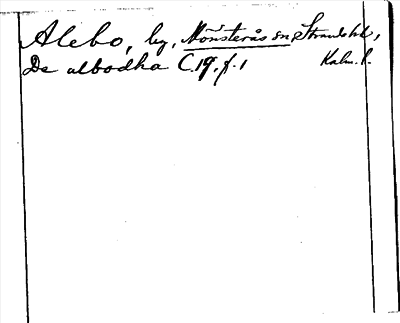 Alebo, by, Mönsterås sn, Strandahd,
De albodha C.19.f.1 Kalm. l.